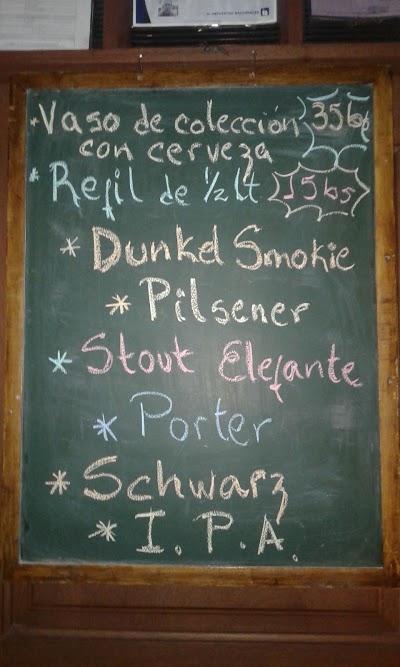 * Vaso de colección 35bs
con cerveza
* Refil de 1/2 Lt 15bs
* Dunkel Smokie
* Pilsener
* Stout Elefante
* Porter
* Schwarz
* I.P.A.